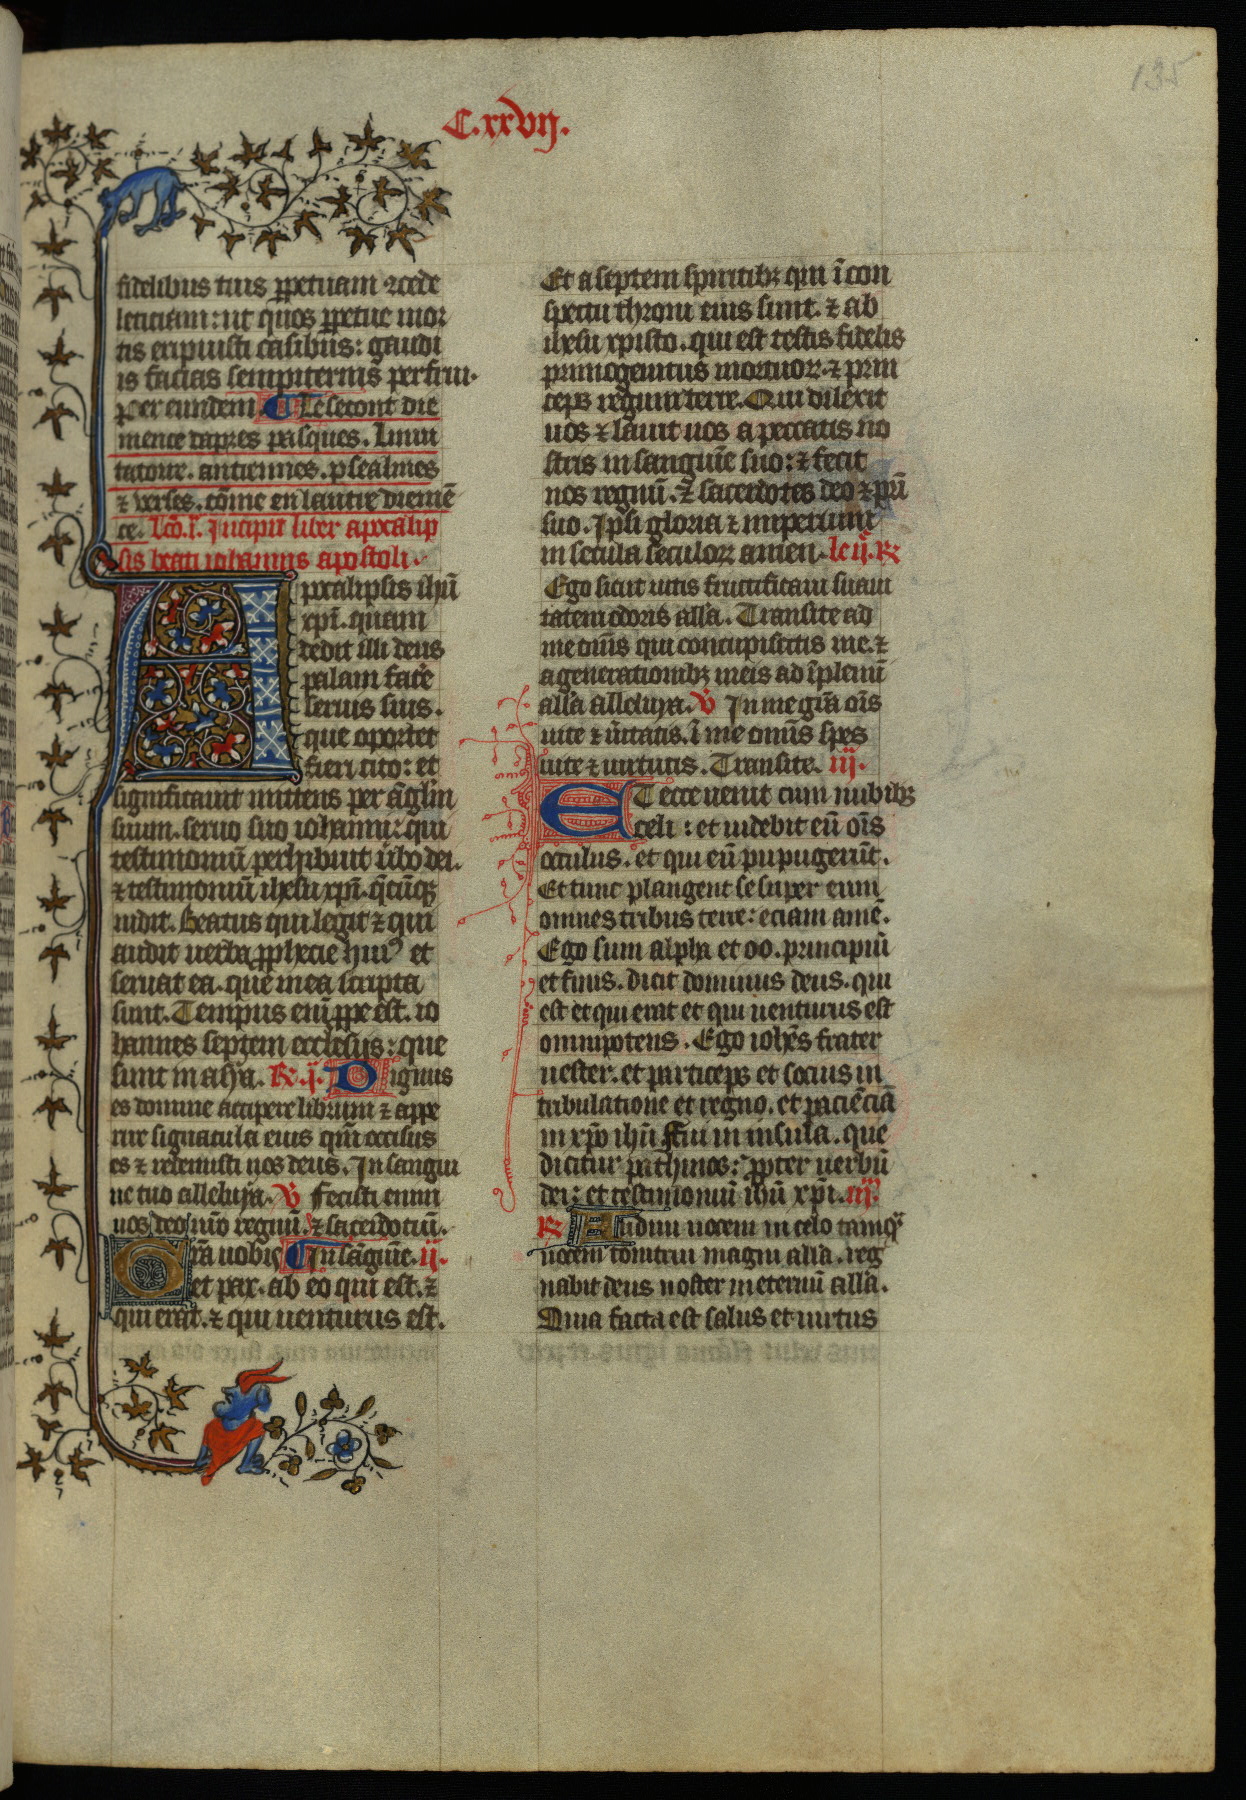 135
C.xxvij.
fidelibus tuis ꝑpetuam ꝯcede
leticiam: ut quos ꝑpetue mor
tis eripuisti casibus: gaudi
is facias sempiternis perfrui.
per eundem Le secont die
mence dapres pasques. Inui
tatoire. antiennes. psealmes
⁊ verses. cōme en lautre diemē
ce. Lc̄o. i. Incipit liber apocalip
sis beati iohannis apostoli.
Apocalipsis ihū
xp̄i. quam
dedit illi deus
palam facē
seruis suis.
que oportet
fieri cito: et
significauit mittens per āgl̄m
suum. seruo suo iohanni: qui
testimoniū perhibuit ūbo dei.
⁊ testimoniū ihesu xp̄i. q̄cūqꝫ
uidit. Beatus qui legit ⁊ qui
audit uerba ꝓphecie huiꝰ et
seruat ea. que in ea scripta
sunt. Tempus eni ꝓpe est. io
hannes septem ecclesijs: que
sunt in asya. R̷. i. Dignus
es domine accipere librum ⁊ appe
rire signacula eius qm̄ occisus
es ⁊ redemisti nos deus. In sangui
ne tuo alleluya. V̷ Fecisti enim
nos deo nr̄o regnū ⁊ sacerdotiū.
Gr̄a uobis In sāguīe. ii.
et pax. ab eo qui est. ⁊
qui erat. ⁊ qui uenturus est.
Et a septem spiritibꝫ qui ī con
spectu throni eius sunt. ⁊ ab
ihesu xpisto. qui est testis fidelis
primogenitus mortuoꝝ. ⁊ prin
ceps regum terre. Qui dilexit
nos ⁊ lauit nos a peccatis no
stris in sanguīe suo: ⁊ fecit
nos regnū. ⁊ sacerdotes deo ⁊ pr̄i
suo. Ipsi gloria ⁊ imperium
in secula seculoꝝ amen. le ij. R̷
Ego sicut uitis fructificaui suaui
tatem odoris all̄a. Transite ad
me oīnis qui concupiscitis me. ⁊
a generationibꝫ meis ad īplemī
all̄a alleluya. V̷ In me gr̄a oīs
uite ⁊ ūitatis. ī me omīs spes
uite ⁊ uirtutis. Transite. iij.
ET ecce uenit cum nubibꝫ
celi: et uidebit eū oīs
occulus. et qui eū pupugerūt.
Et tunc plangent se super eum
omnes tribus terre: eciam amē.
Ego sum alpha et oo. principiū
et finis. dicit dominus deus. qui
est et qui erat et qui uenturus est
omnipotens. Ego ioh̄es frater
uester. et particeps et socius in
tribulatione et regno. et paciēciā
in xp̄o ihū Fui in insula. que
dicitur pathmos: ꝓpter uerbū
dei: et testimoniū ihū xp̄i. iiij.
R̷ Audiui uocem in celo tamqᷓ
uocem tonitrui magni all̄a. reg
nabit deus noster in eternū all̄a.
Quia facta est salus et uirtus